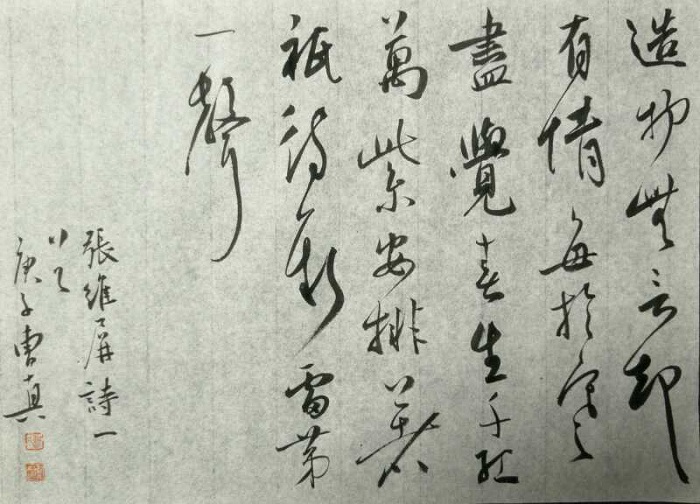 造物無言卻
有情每於寒
盡覺春生千紅
萬紫安排著
祇待新雷第
一聲
張維屏詩一
首
庚子曹真